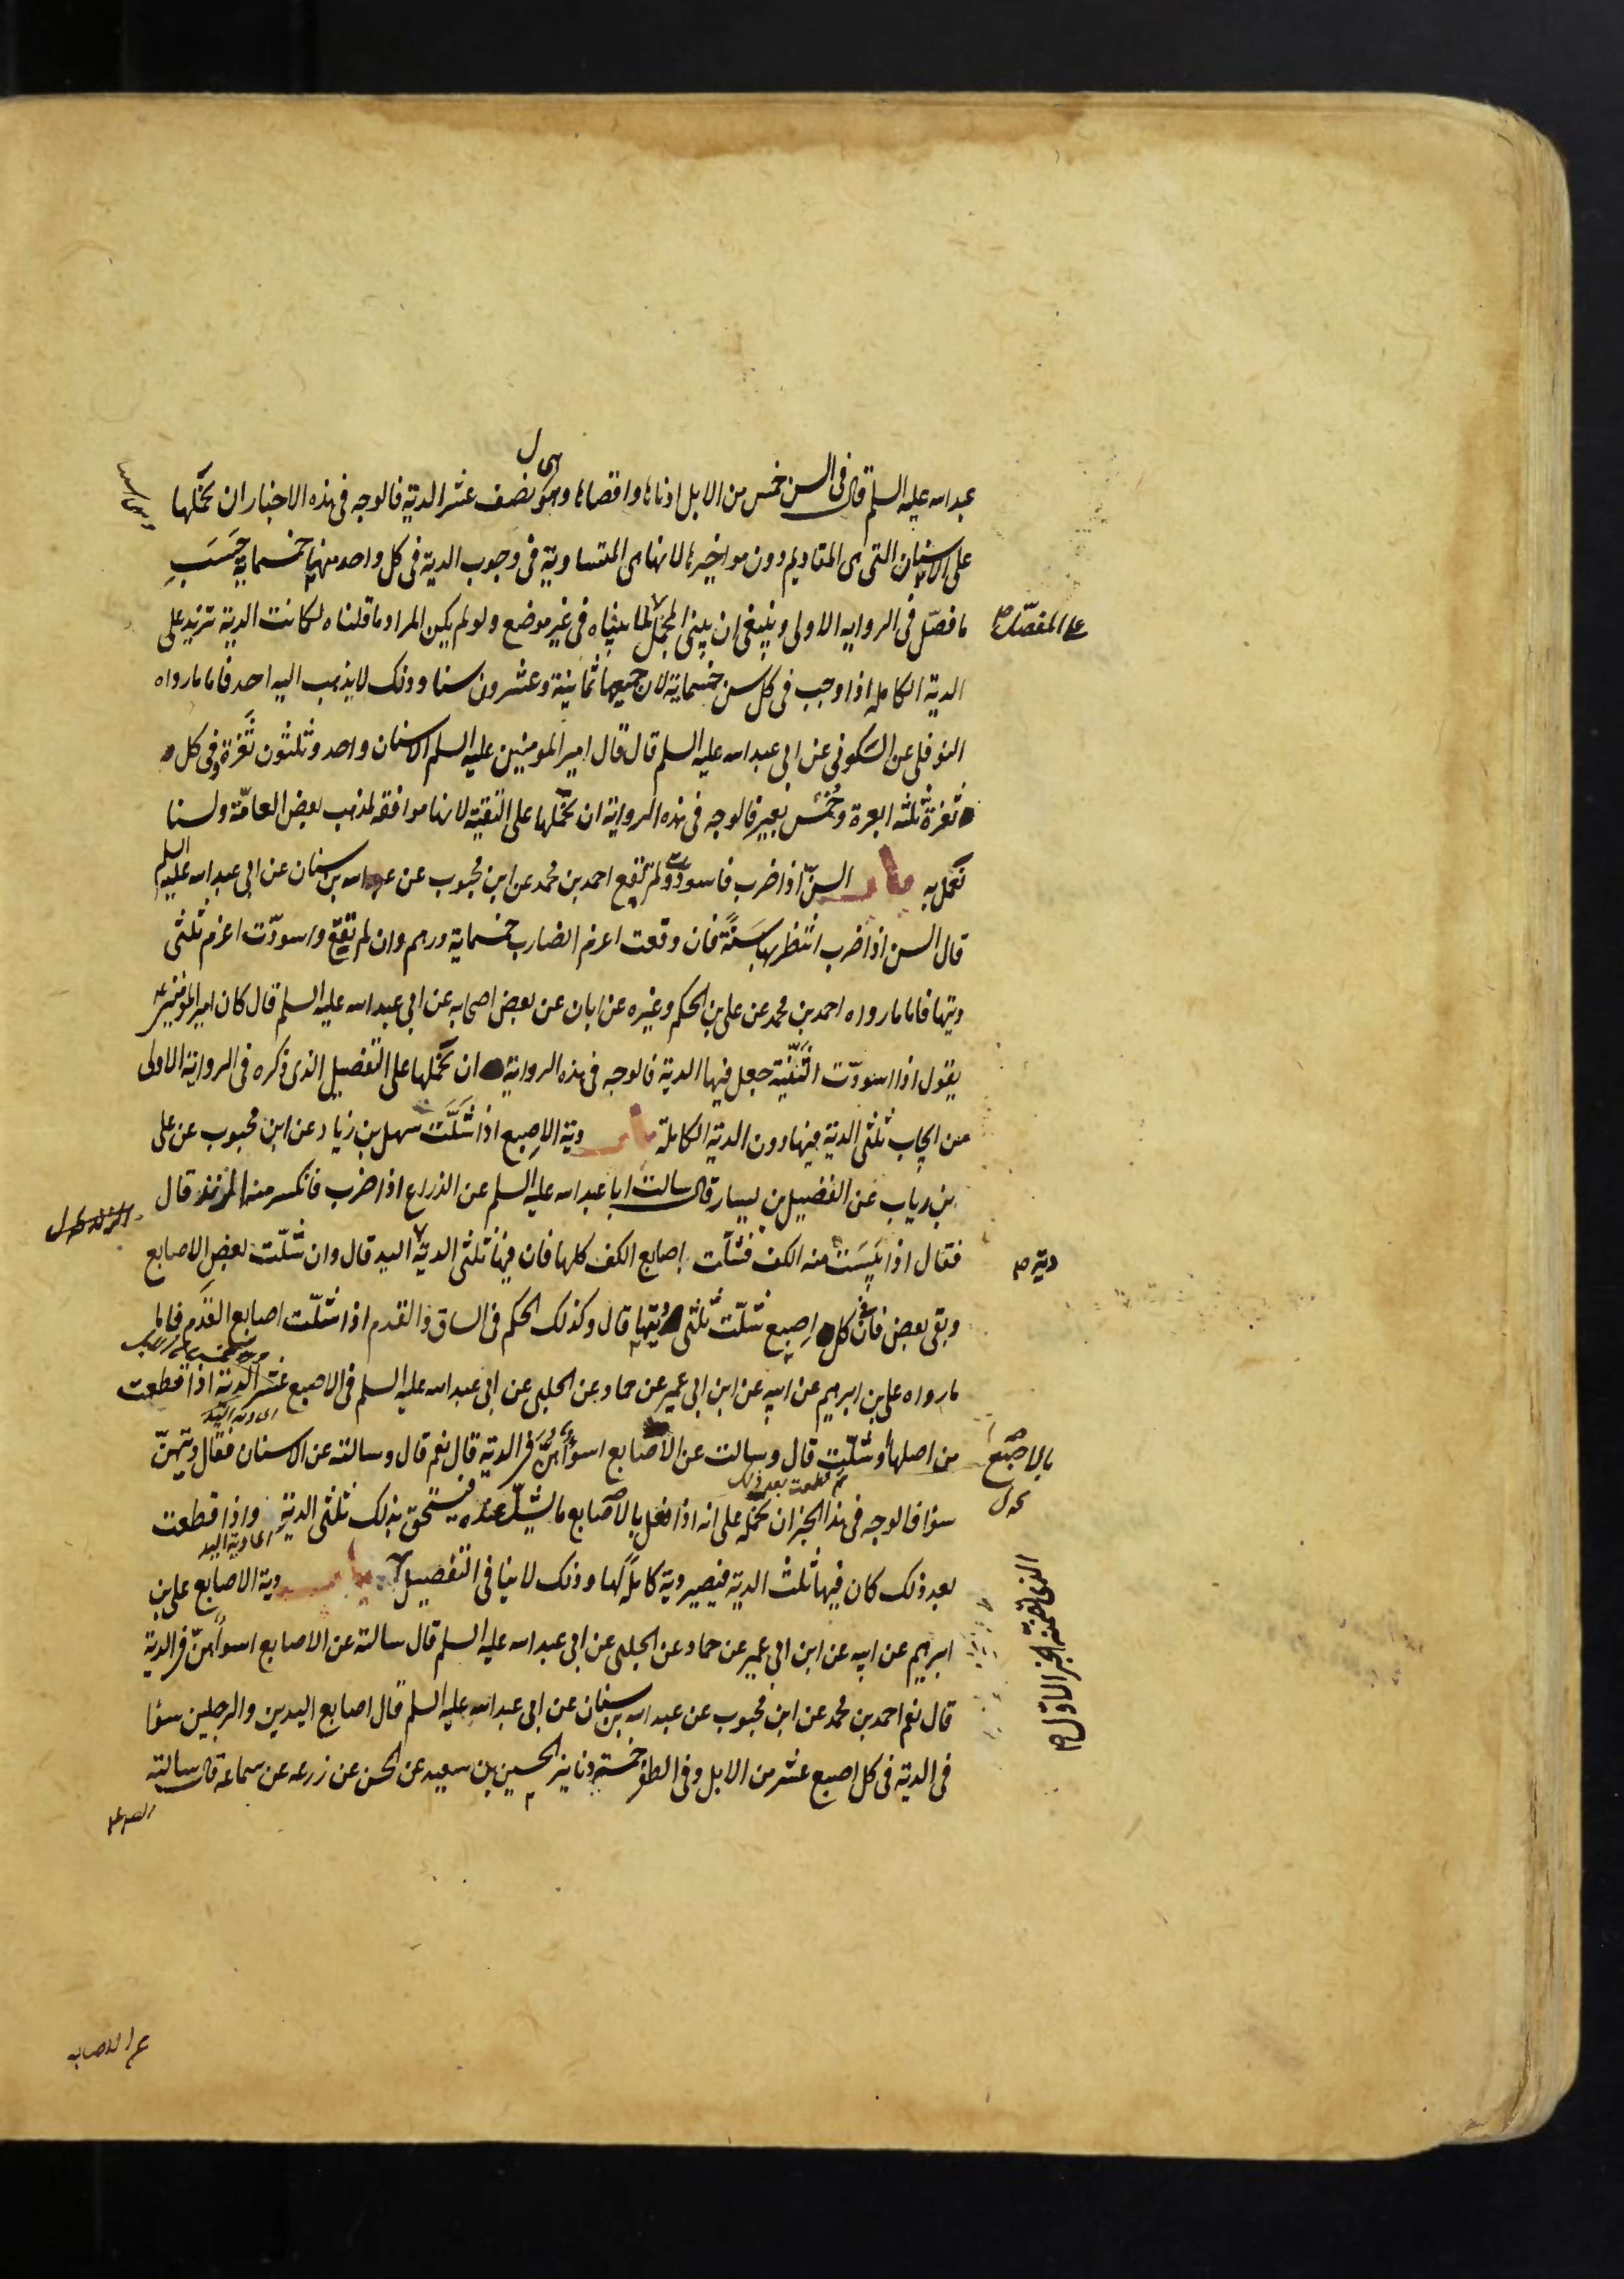 عبد الله عليه السلم قال فى السن خمس من الابل ادناها واقصاها وهو نصف عشر الدية فالوجه فى هذه الاخبار ان نحملها
على الاسنان التى هى المقاديم دون مواخيرها لانها هى المتساوية فى وجوب الدية فى كل واحد منها خمسماية حَسَبَ
ما فصّل فى الروايه الاولى وينبغى ان يبنى المجمل لما بيناه فى غير موضع ولو لم يكن المراد ما قلناه لكانت الدية تزيد على
على المفصّل
الدية الكامله اذا اوجب فى كل سن خمسماية لان جميعها ثمانية وعشرون سنا وذلك لا يذهب اليه احد فاما ما رواه
النوفلى عن السكونى عن ابى عبد الله عليه السلم قال قال امير المومنين عليه السلم الاسنان واحد وثلثون ثَغرة وفى كل
ثغرة ثلثه ابعرة وخُمْس بعير فالوجه فى هذه الرواية ان نحملها على التقية لانها موافقه لمذهب بعض العامّة ولسنا
نعمل به باب السنّ اذا ضرب فاسودّت ولم تقع احمد بن محمد عن ابن محبوب عن عبد الله بن سنان عن ابى عبد الله عليه السلم
قال السن اذا ضرب انتظر بها سَنَةً فان وقعت اغرم الضارب خمسماية درهم وان لم تقع واسودّت اغرم ثلثى
ديتها فاما ما رواه احمد بن محمد عن على بن الحكم وغيره عن ابان عن بعض اصحابه عن ابى عبد الله عليه السلم قال كان امير المومنين ع
يقول اذا اسودّت الثَّنيّة جعل فيها الدية فالوجه فى هذه الرواية ان نحملها على التفصيل الذى ذكره فى الرواية الاولى
من ايجاب ثلثى الدية فيها دون الدية الكاملة باب دية الاصبع اذا شَلَّت سهل بن زياد عن ابن محبوب عن على
بن رياب عن الفضيل بن يسار قال سالت ابا عبد الله عليه السلم عن الذراع اذا ضرب فانكسر منه الزند قال
فقال اذا يَبِسَت منه الكف فشلّت اصابع الكف كلها فان فيها ثلثى الدية اليد قال وان شلّت بعض الاصابع
دية
وبقى بعض فان فى كل اصبع شلّت ثلثى ديتها قال وكذلك الحكم فى الساق والقدم اذا شلّت اصابع القدم فاما
ما رواه على بن ابرهيم عن ابيه عن ابن ابى عمير عن حماد عن الحلبى عن ابى عبد الله عليه السلم فى الاصبع عشر الدية اذا قطعت
من اصلها أو شلّت قال وسالت عن الاصابع اسواء هُنَّ فى الدية قال نعم قال وسالته عن الاسنان فقال ديتهنّ
سوا فالوجه فى هذا الخبر ان نحمله على انه اذا فعل بالاصابع ما يشلّ عنده فيستحق بذلك ثلثى الدية واذا قطعت
بالاصبع
ثم قطعت بعد ذلك
اعنى دية اليد
بعد ذلك كان فيها ثلث الدية فيصير دية كاملة لها وذلك لا ينافى التفصيل باب دية الاصابع على بن
الذى تضمنه الخبر الاول
ابرهيم عن ابيه عن ابن ابى عمير عن حماد عن الحلبى عن ابى عبد الله عليه السلم قال سالته عن الاصابع اسواء هنّ فى الدية
قال نعم احمد بن محمد عن ابن محبوب عن عبد الله بن سنان عن ابى عبد الله عليه السلم قال اصابع اليدين والرجلين سوا
فى الدية فى كل اصبع عشر من الابل وفى الظفر خمسة دنانير الحسين بن سعيد عن الحسن عن زرعه عن سماعه قال سالته
عن الاصابع